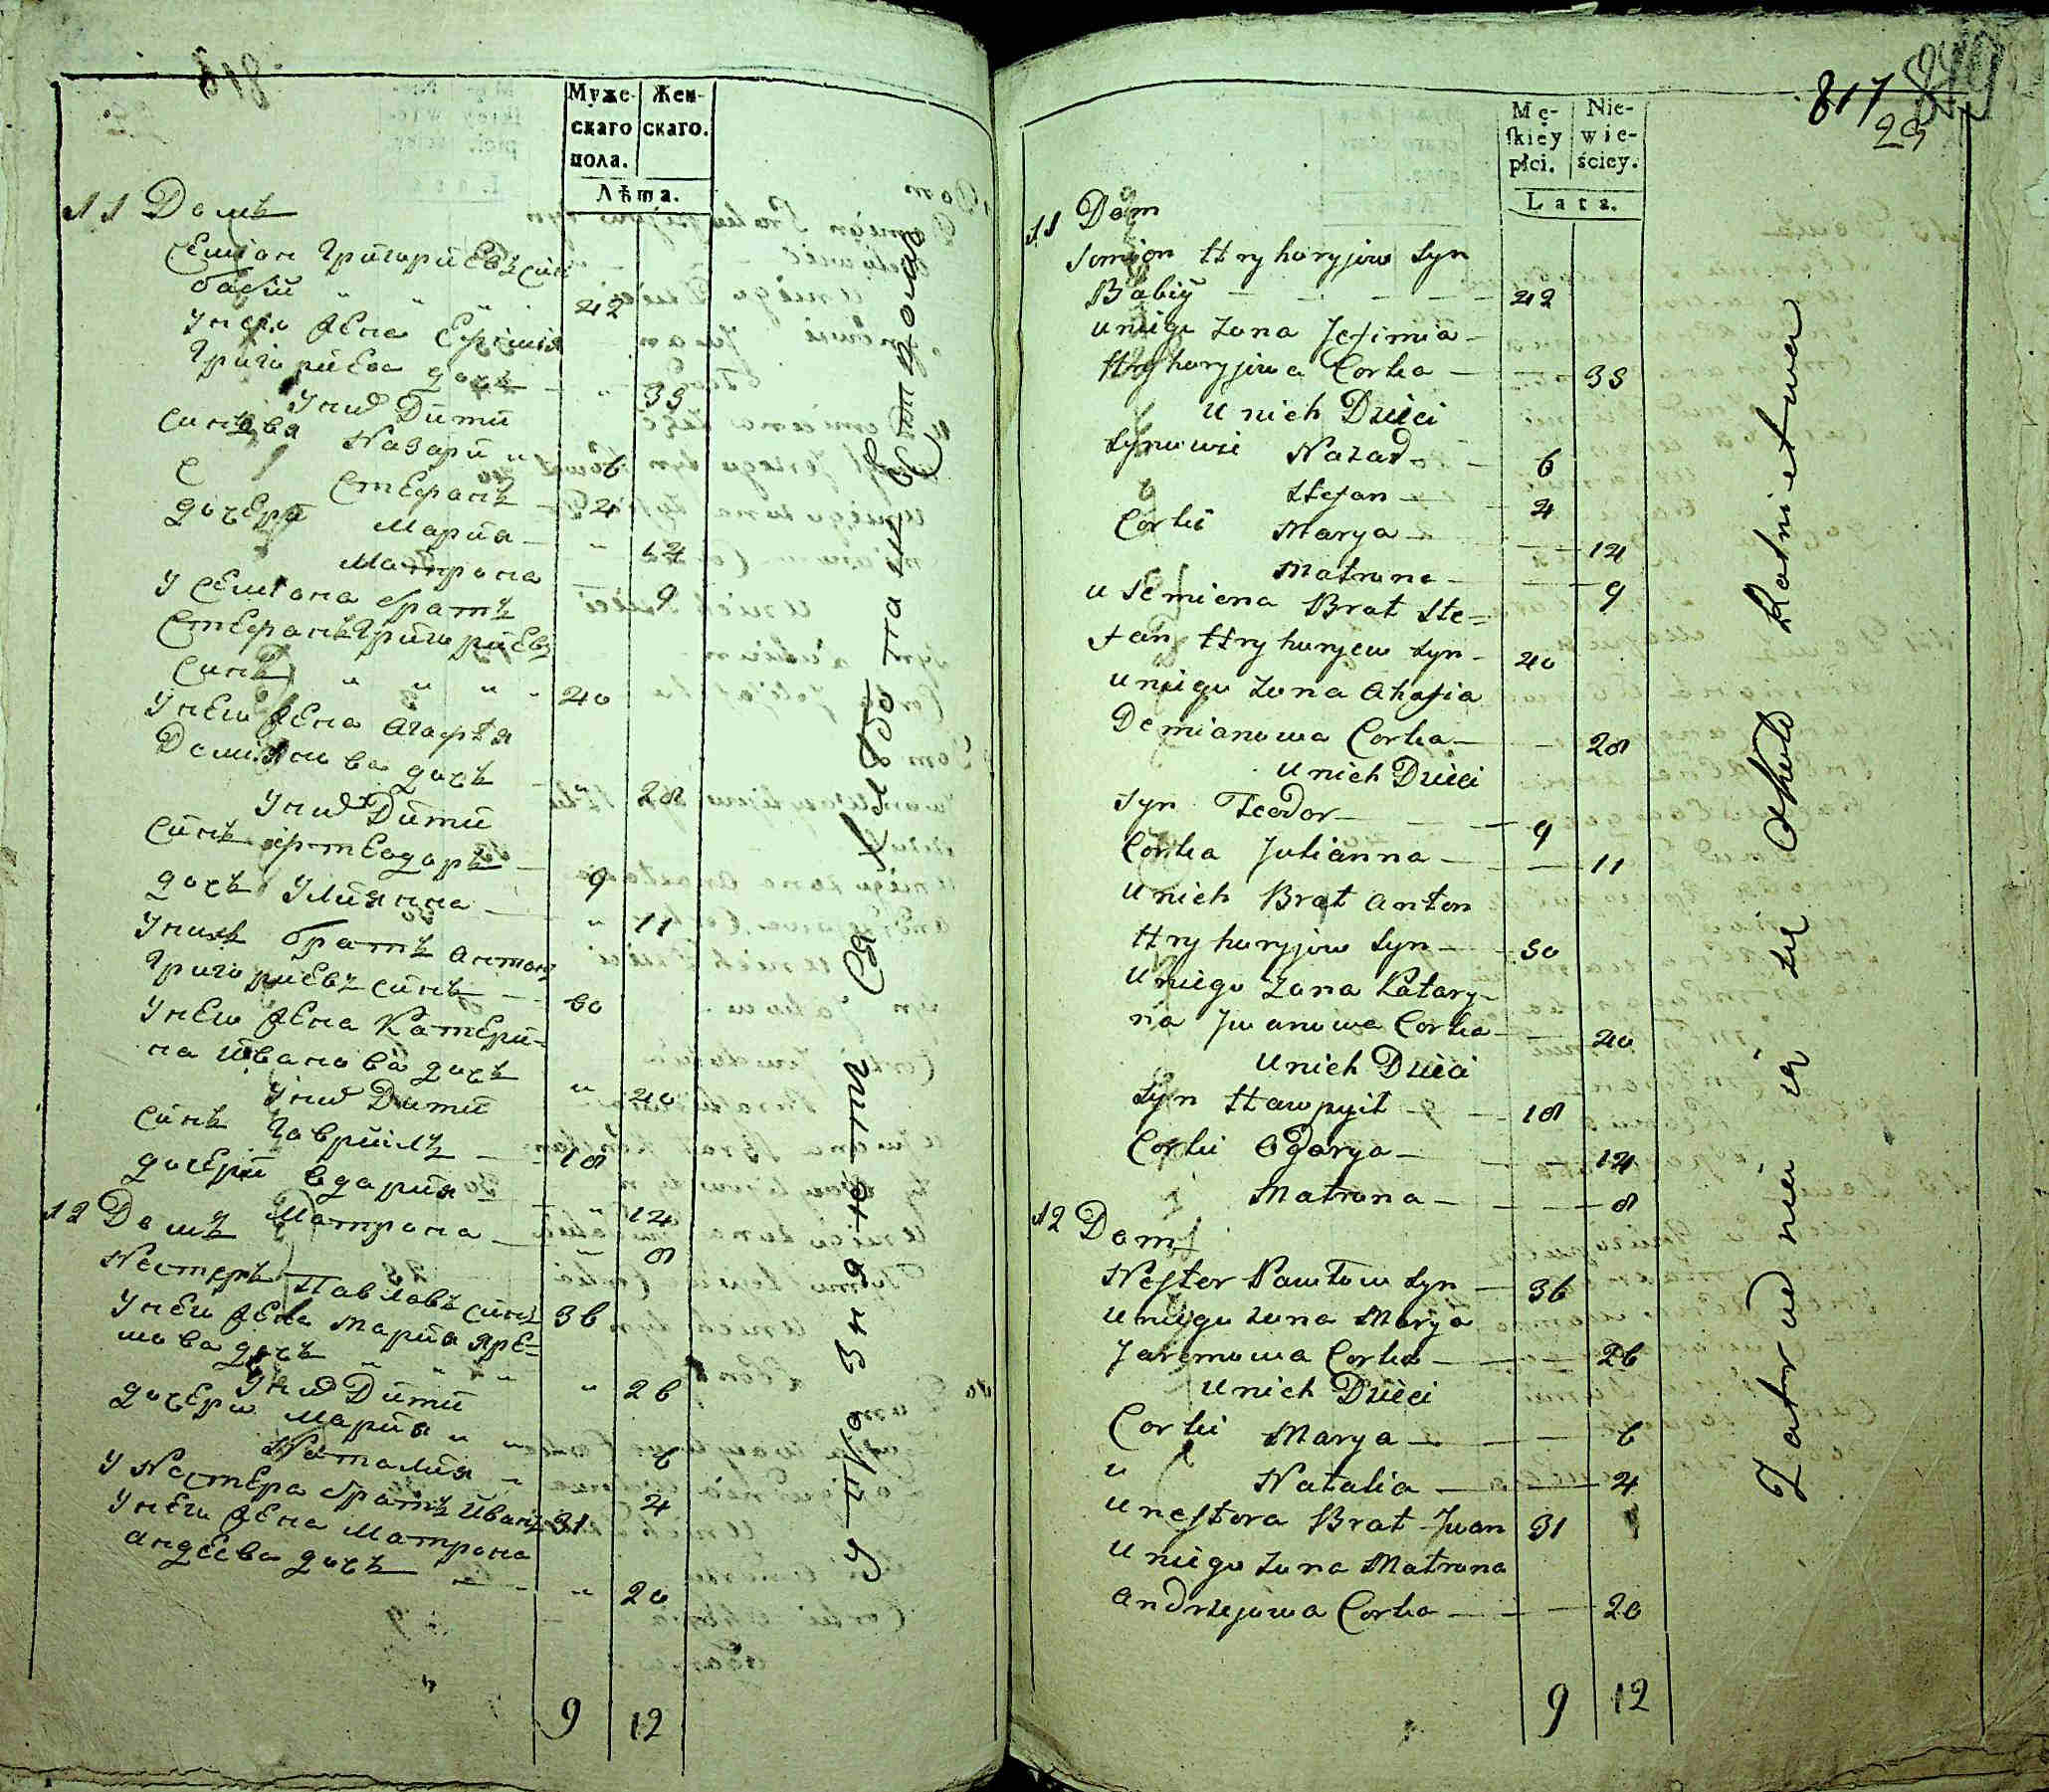 Муже-
скаго
пола.
Жен-
скаго.
Лѣта.
11 Домъ
Семіон Григориевъ син
бабїй " " " " 42
У него жена Ефимия
Григориева дочь " 33
У них Дити
Синовя Назарй " 6
Стефанъ 4
дочери Мария " 14
Матрона 9
У Семиона братъ
Стефанъ Григориевъ
Синъ " " " " 40
У него жена Агафія
Демянова дочь " 28
У них Дити
Синъ Фтеодоръ 9
дочь Улияна 11
У нихъ братъ Антонъ
Григориевъ синъ 60
У него жена Катери-
на Иванова дочь " 40
У них Дити
Синъ Гаврйилъ 18
дочери Едария " 14
Матрона " 8
12 Домъ
Нестеръ Павловъ синъ 36
У него жена Мария Яре=
мова дочь " " " 26
У них Дити
дочери Мария " " 6
Наталия " 4
У Нестера братъ Иванъ 31
У него жена Матрона
Андеева дочь " 20
9 12
Упражняются в работами
817
29
Mę-
ſkiey
płci.
Nie-
wie-
ściey.
Lata.
11 Dom
Semion Hryhoryjow Syn
Babiÿ 42
u niego Zona Jefimia
Hryhoryjowa Corka 33
u nich Dzieci
Synowie Nazar 6
Stefan 4
Corki Marya 14
Matrona 9
u Semiona Brat Ste=
fan Hryhoryew Syn 40
u niego Zona Ahafia
Demianowa Corka 28
u nich Dzieci
Syn Teodor 9
Corka Julianna 11
u nich Brat Anton
Hryhoryjow Syn 30
u niego Zona Katary-
na Jwanowa Corka 40
u nich Dzieci
Syn Hawryił 18
Corki Odarya 14
Matrona 8
12 Dom
Nestor Pawłow Syn 36
u niego Zona Marya
Jaremowa Corka 26
u nich Dzieci
Corki Marya 6
" Natalia 4
u Nestora Brat Jwan 31
u niego Zona Matrona
Andrzejowa Corka 20
9 12
Zatrud nia ią się około Rolnictwa